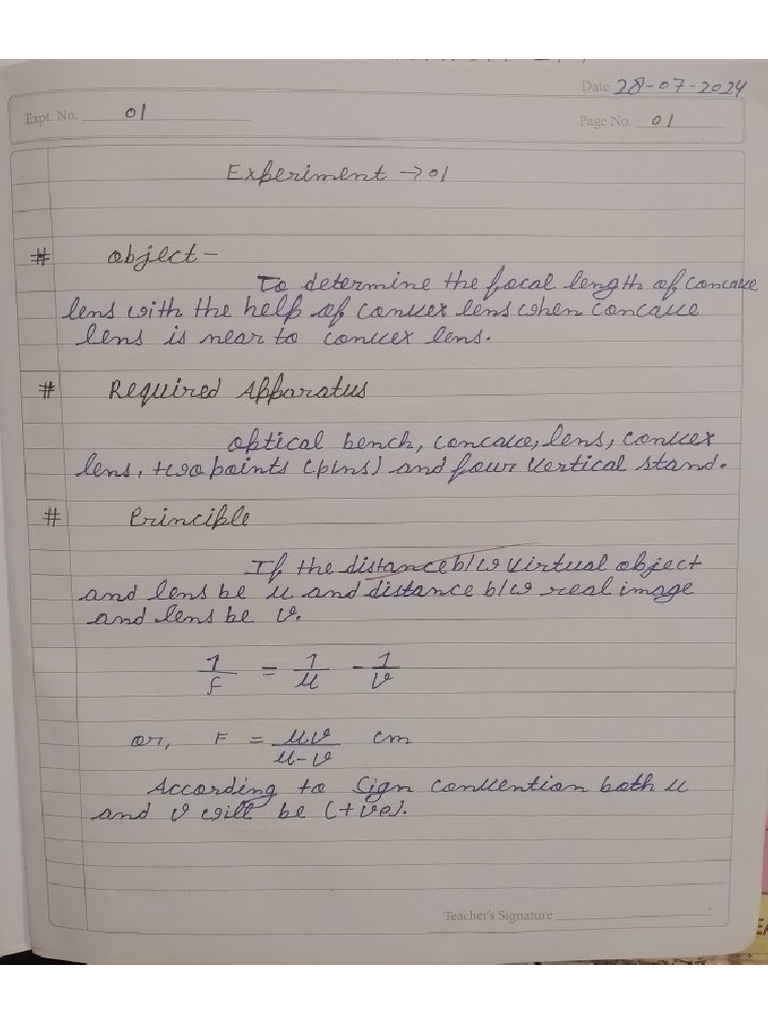 Date 28-07-2024
Expt. No. 01
Page No. 01
Experiment → 01
# object -
To determine the focal length of concave
lens with the help of convex lens when concave
lens is near to convex lens.
# Required Apparatus
optical bench, concave, lens, convex
lens, two points (pins) and four vertical stand.
# Principle
If the distance b/w virtual object
and lens be u and distance b/w real image
and lens be v.
1/F = 1/u - 1/v
or, F = uv/u-v cm
According to Sign convention both u
and v will be (+ve).
Teacher's Signature